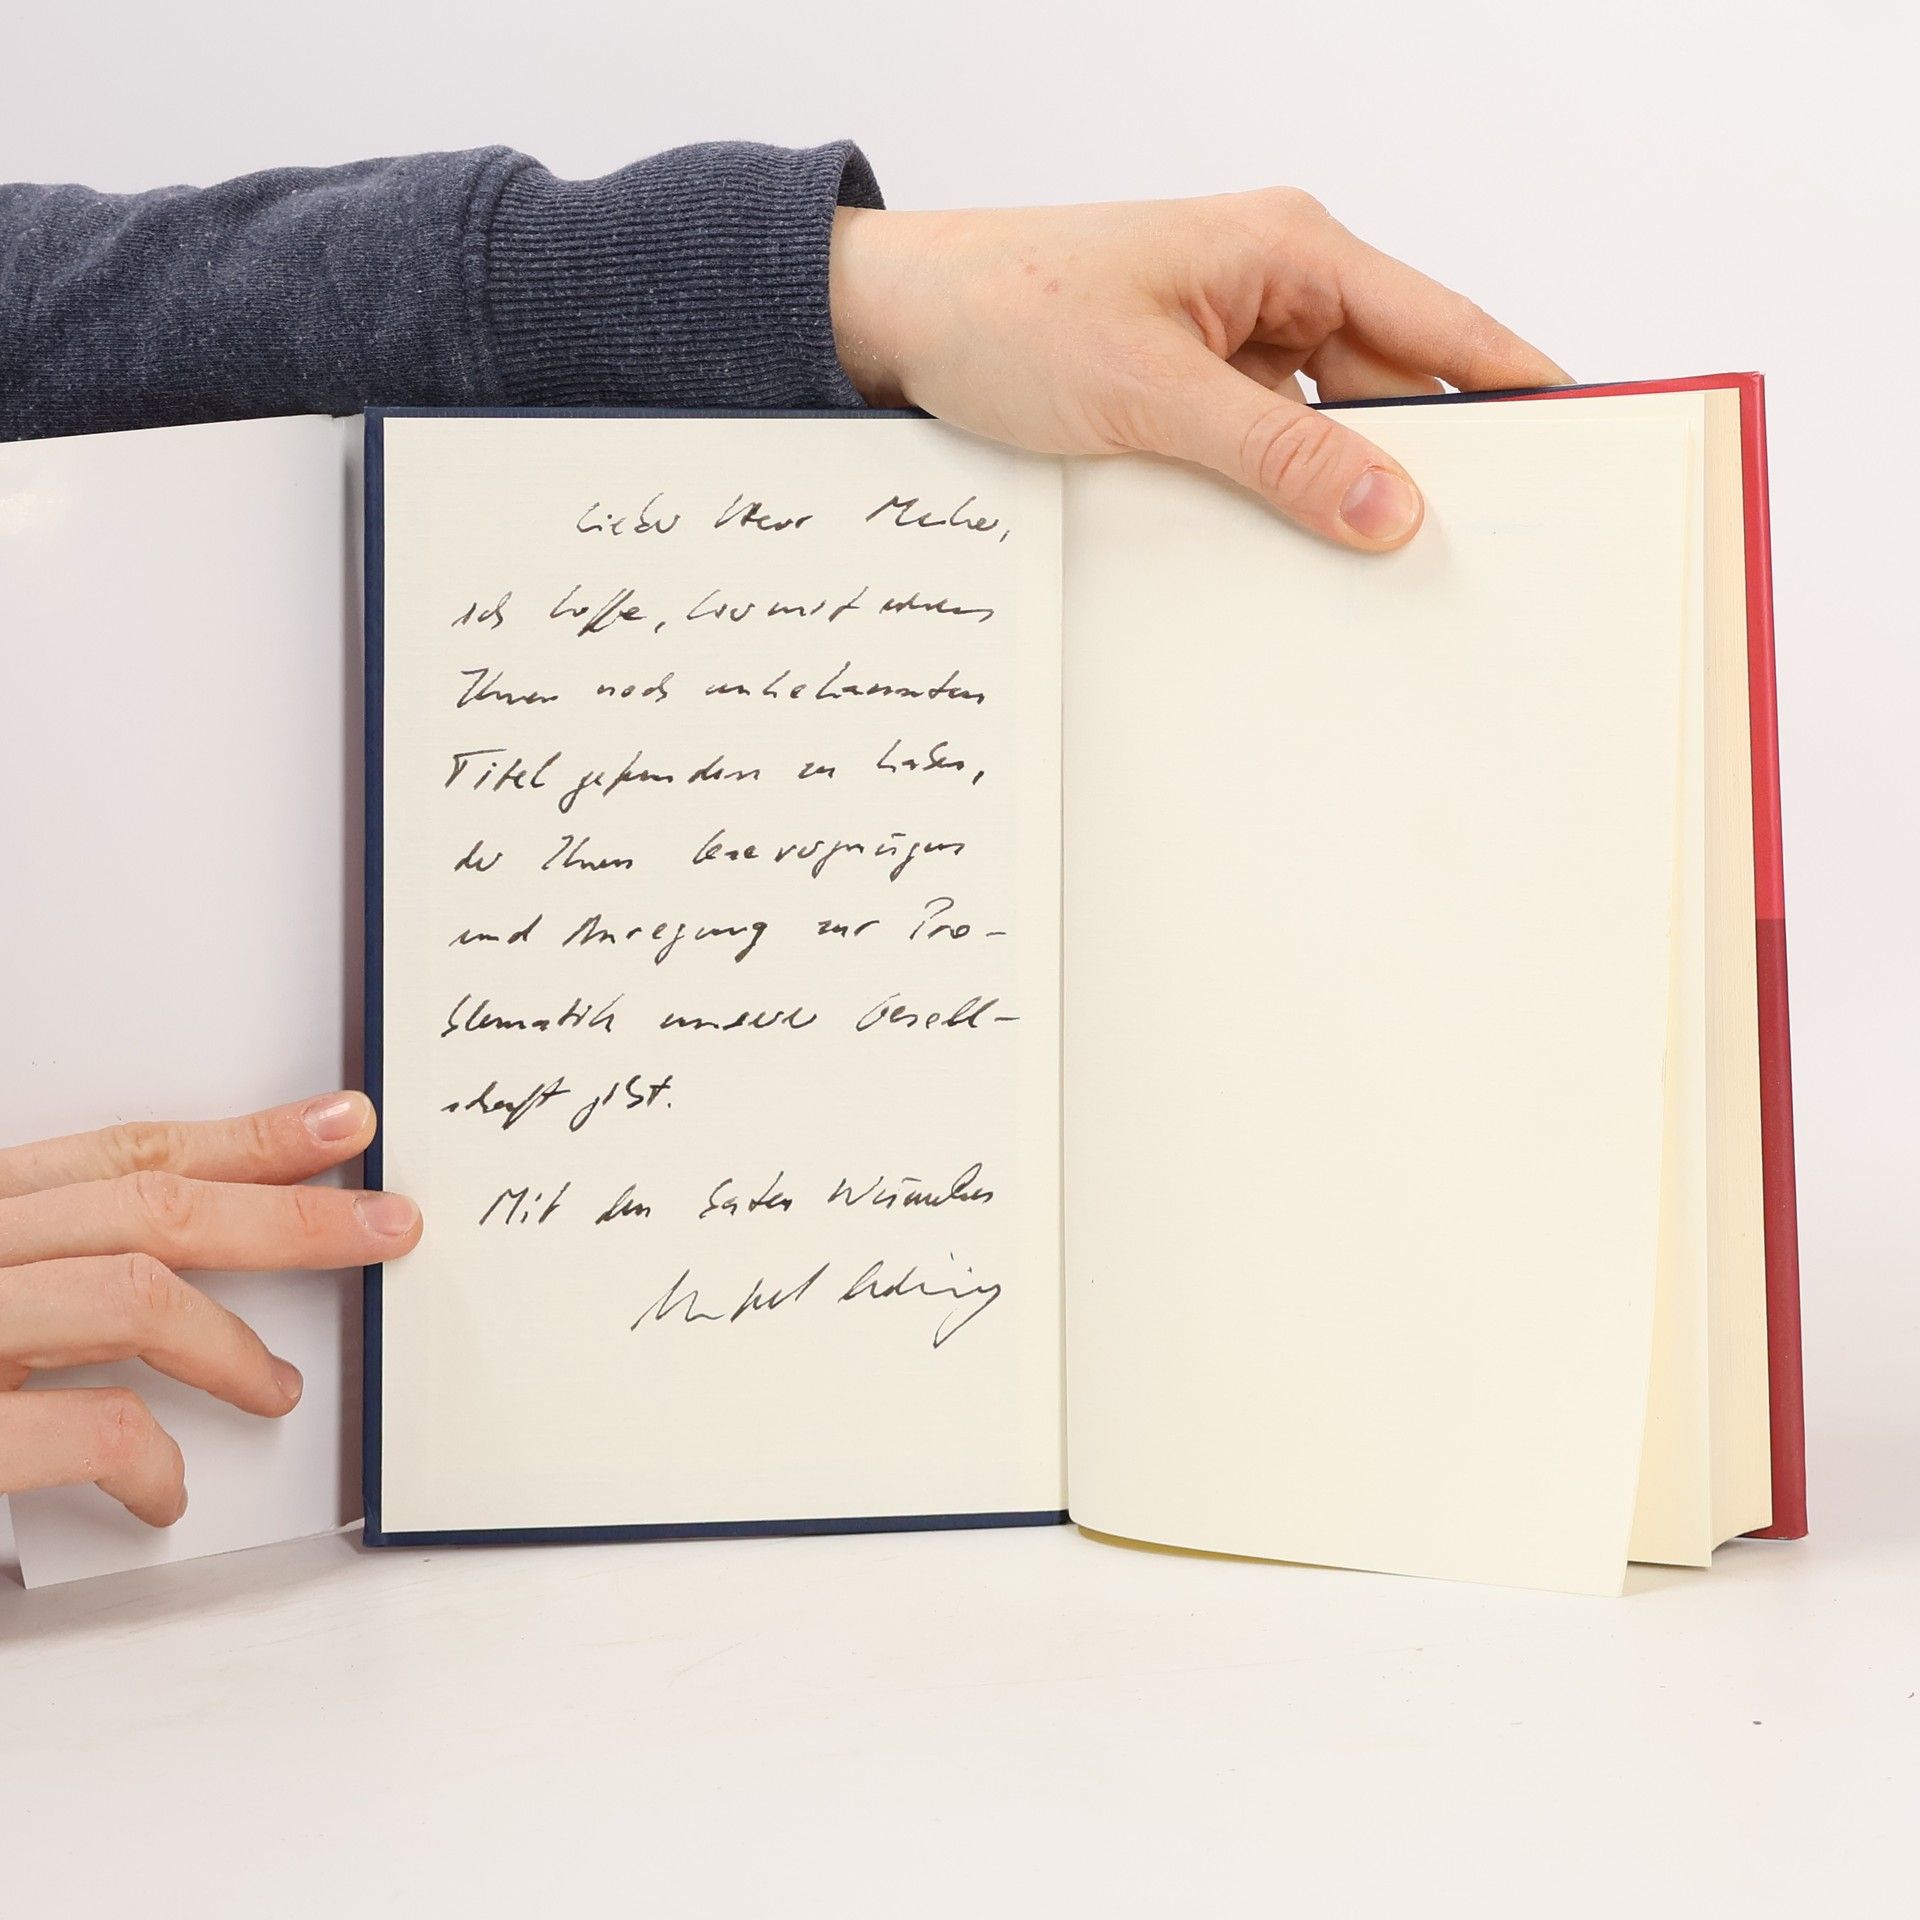 Lieber Herr
ich hoffe, hiermit einen
Ihnen noch unbekannten
Titel gefunden zu haben,
der Ihnen Lesevergnügen
und Anregung zur Pro-
blematik unserer Gesell-
schaft gibt.
Mit den besten Wünschen